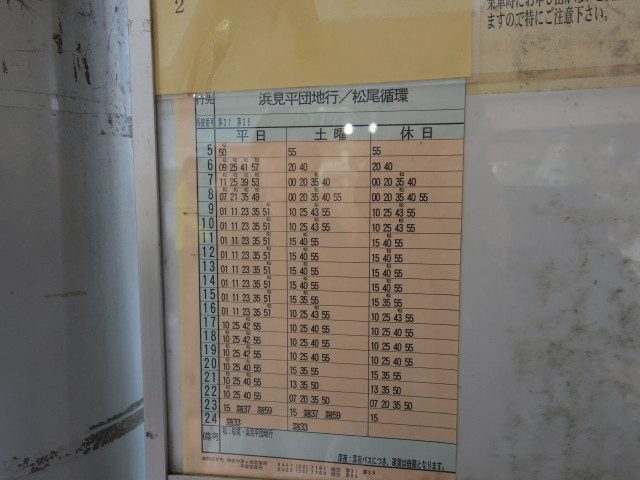 2
ますので特にご注意下さい。
行先 浜見平団地行／松尾循環
系統番号 茅31 茅35
平日 土曜 休日
5 50 55 55
6 09 25 41 57 20 40 20 40
7 11 25 39 53 00 20 35 40 00 20 35 40
8 07 21 35 49 00 20 35 40 55 00 20 35 40 55
9 01 11 23 35 51 10 25 43 55 10 25 43 55
10 01 11 23 35 51 10 25 43 55 10 25 43 55
11 01 11 23 35 51 15 40 55 15 40 55
12 01 11 23 35 51 15 40 55 15 40 55
13 01 11 23 35 51 15 40 55 15 40 55
14 01 11 23 35 51 15 40 55 15 40 55
15 01 11 23 35 51 15 35 55 15 35 55
16 01 11 23 35 51 10 25 43 55 10 25 43 55
17 10 25 42 55 10 25 40 55 10 25 40 55
18 10 25 42 55 10 25 40 55 10 25 40 55
19 10 25 42 55 10 25 40 55 10 25 40 55
20 10 25 40 55 15 35 55 15 35 55
21 10 25 40 55 13 35 50 13 35 50
22 10 25 40 55 07 20 35 50 07 20 35 50
23 15 深夜37 深夜59 15 深夜37 深夜59 15
24 深夜33 深夜33
備考 松：松尾・浜見平団地行
深夜：深夜バスにつき、運賃は倍額となります。